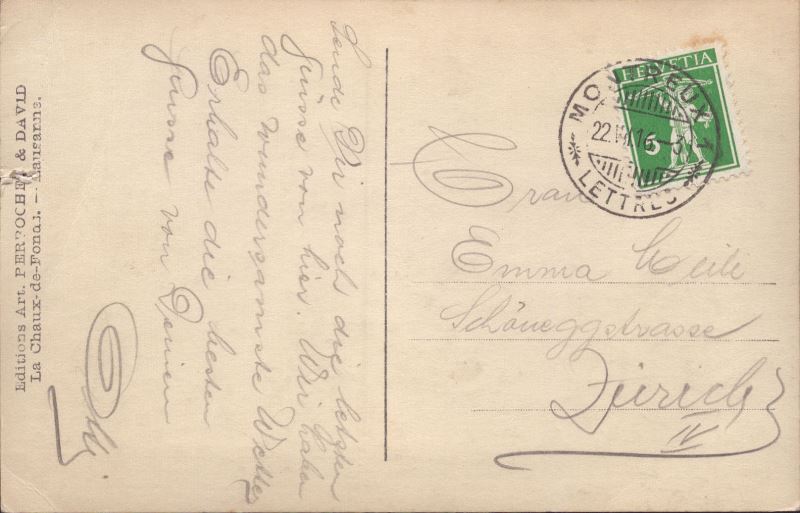 Editions Art. PERROCHET & DAVID
La Chaux-de-Fonds. — Lausanne.
Sende Dir noch die letzten
Grüsse von hier. Wir haben
das wundersamste Wetter
Erhalte die besten
Grüsse von Deinem
HELVETIA
5
MONTREUX 1
LETTRES
Frau
Emma
Schöneggstrasse
Zürich
IV